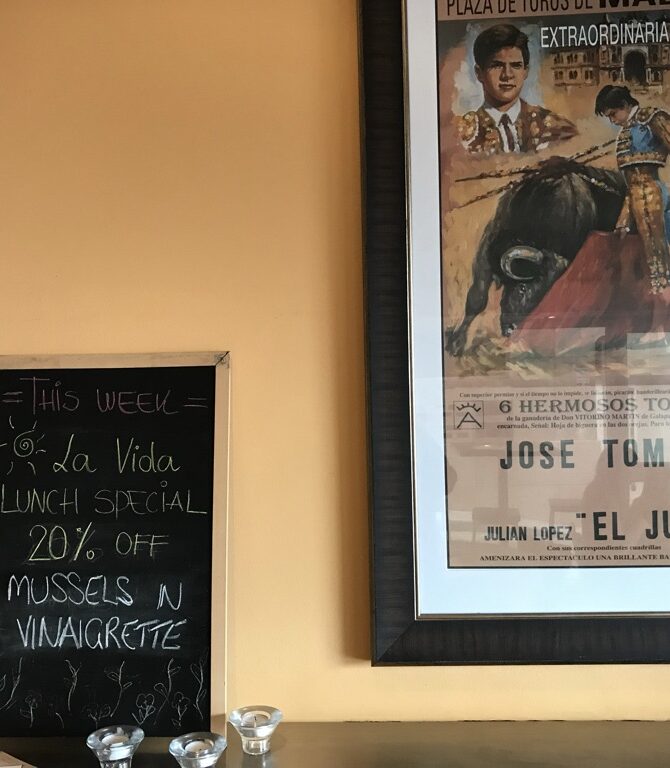 = THIS WEEK =
La Viola
LUNCH SPECIAL
20% OFF
MUSSELS IN
VINAIGRETTE
PLAZA DE TOROS DE MA
EXTRAORDINARIA
Con superior permiso y si el tiempo no lo impide, se lidiarán, picarán, banderillear
6 HERMOSOS TO
de la ganadería de Don VITORINO MARTIN de Galapa
encarnada, Señal: Hoja de higuera en las dos orejas. Para l
JOSE TOM
JULIAN LOPEZ "EL JU
Con sus correspondientes cuadrillas
AMENIZARA EL ESPECTACULO UNA BRILLANTE BA